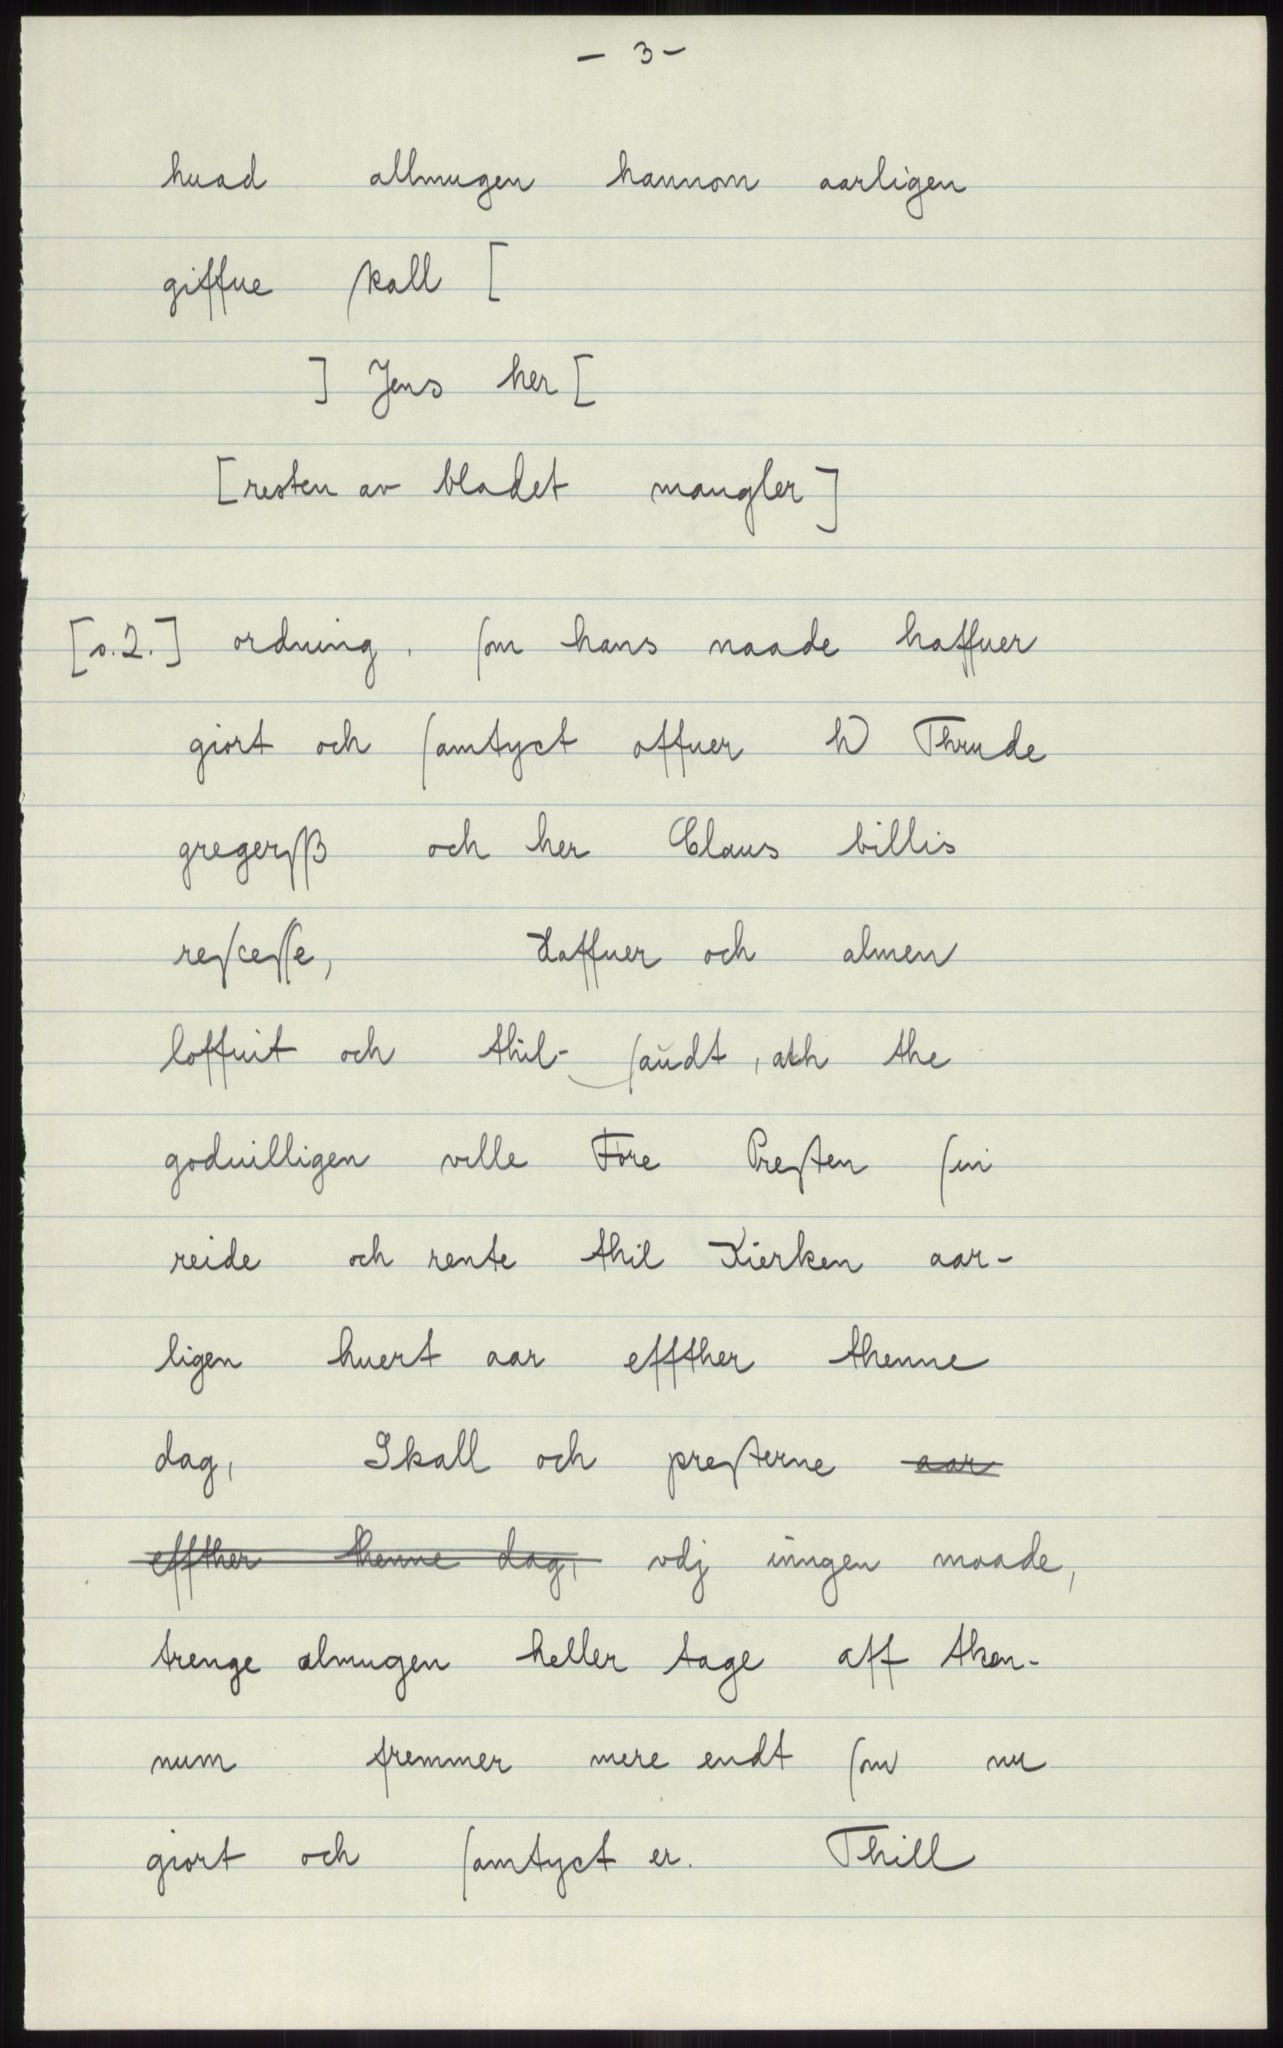 - 3 -
huad allmugen hannom aarligen
giffue ſkall [
] Jens her [
[resten av bladet mangler]
[s. 2.] ordning, ſom hans naade haffuer
giort och ſamtyct offuer h Thrude
gregerſß och her Claus billis
reſceſſe, Haffuer och almen
loffuit och thil- ſaŭdt, ath the
goduilligen velle Føre Preſten ſin
reide och rente thil Kierken aar-
ligen huert aar effther thenne
dag, Skall och preſterne aar
effther thenne dag, vdj inngen maade,
trenge almugen heller tage aff then-
num fremmer mere endt ſom nu
giort och ſamtyct er. Thill